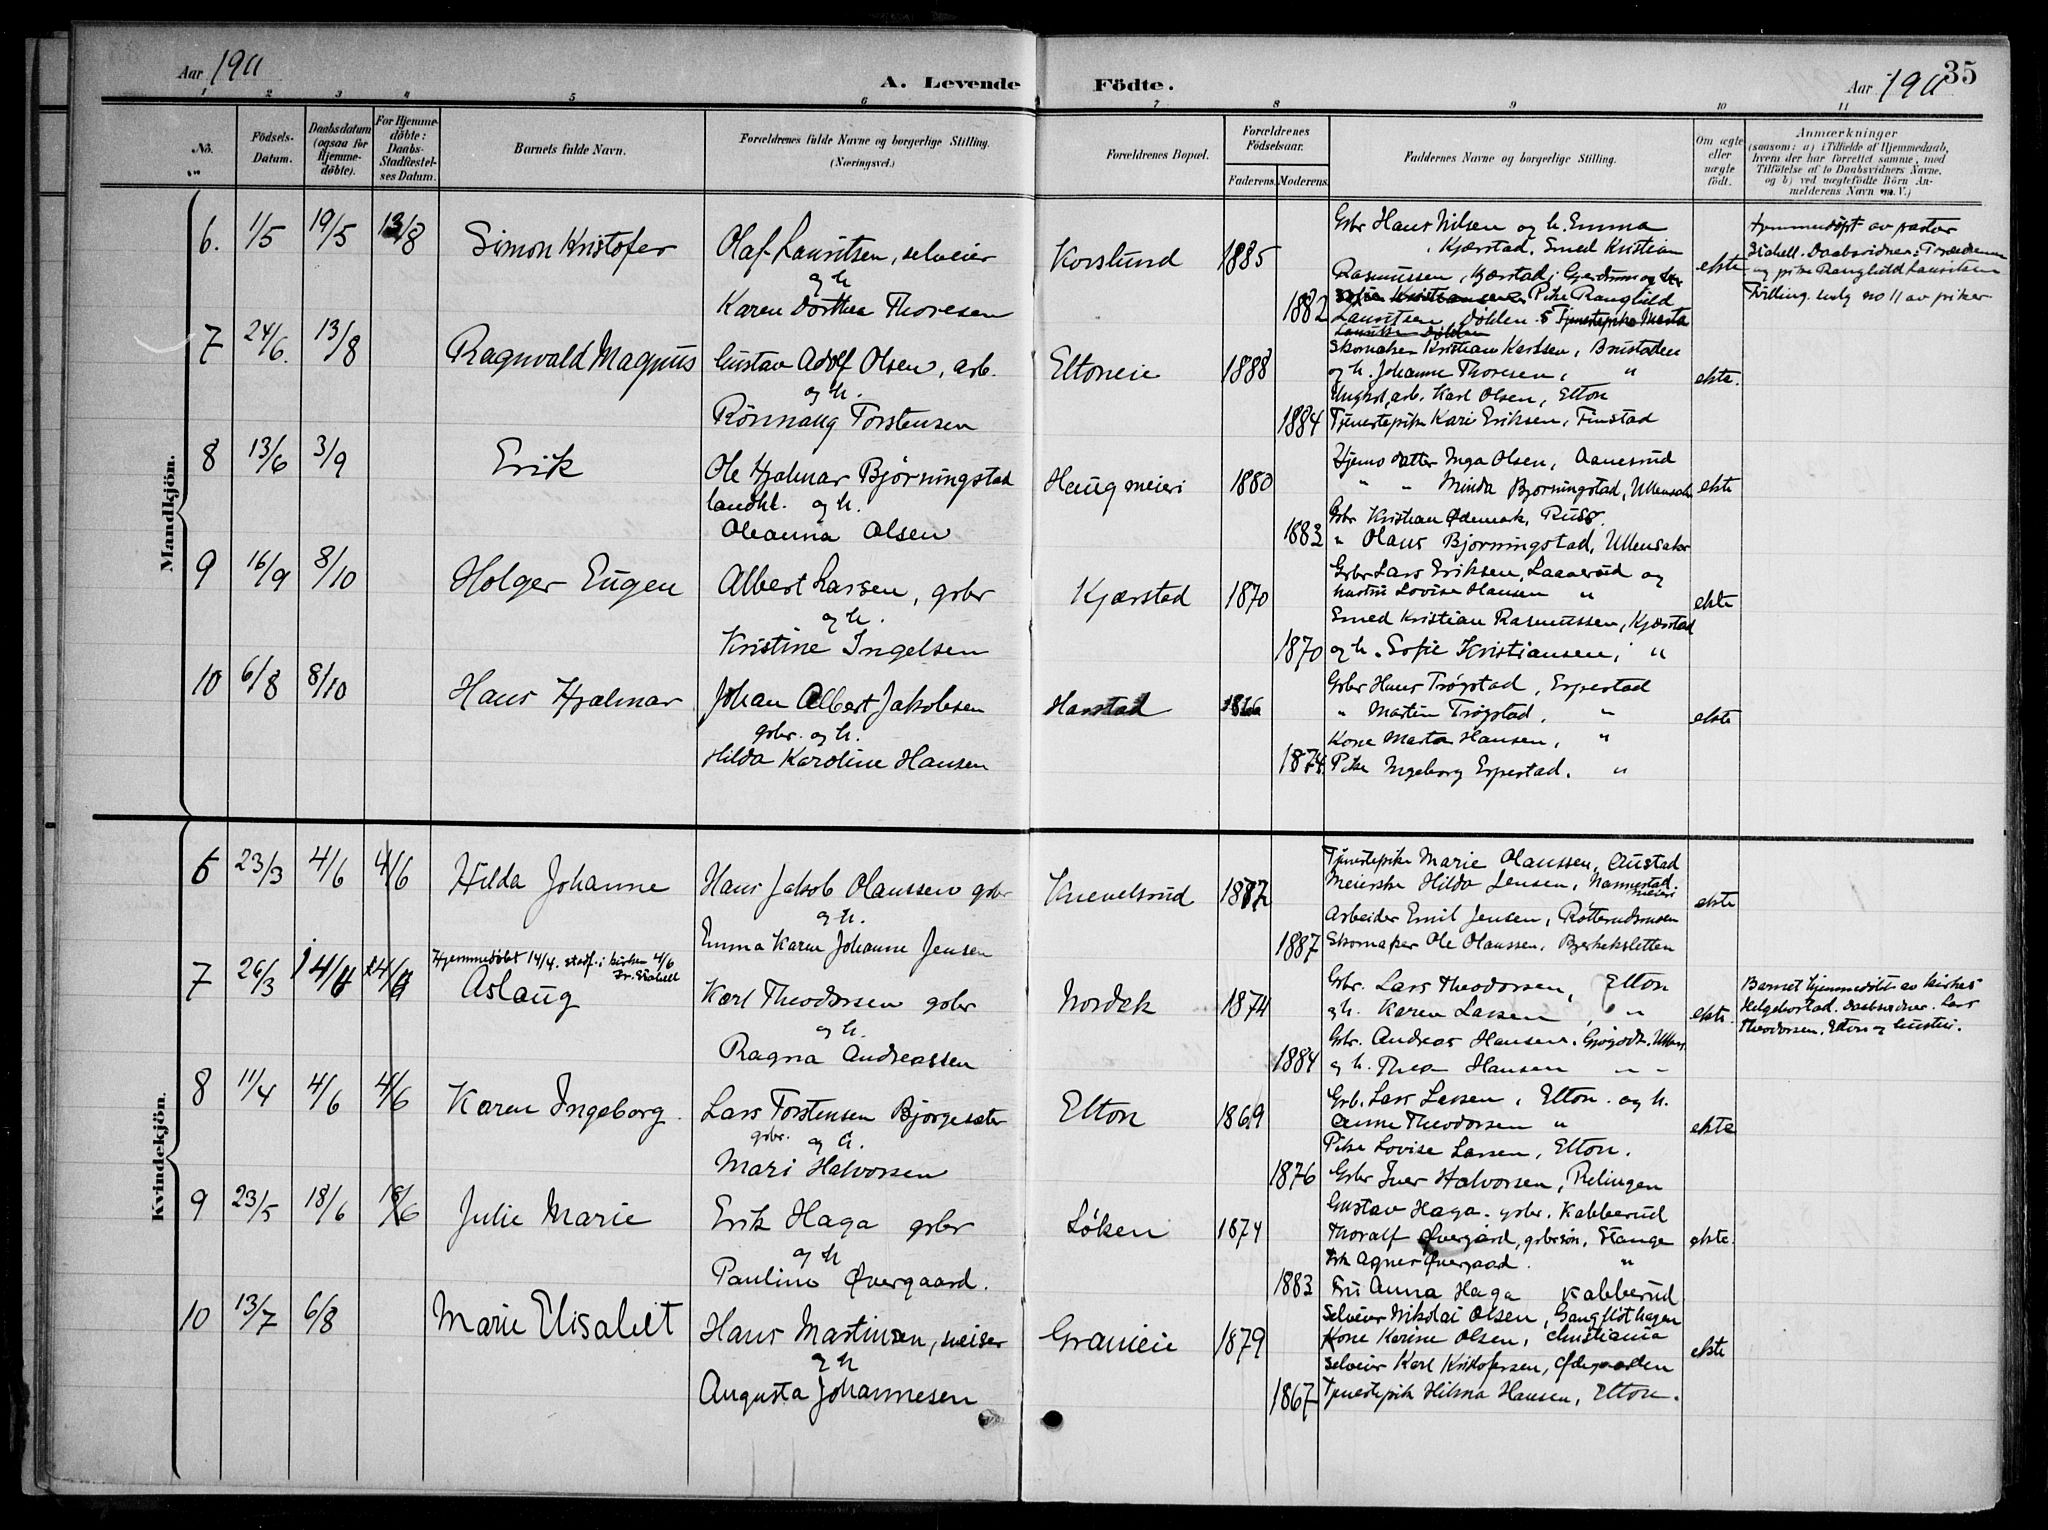 Aar 1911
A. Levende Födte.
Aar 1911
35
1 2 3 4 5 6 7 8 9 10 11
No.
Födsels-Datum.
Daabsdatum (ogsaa for Hjemmedöbte).
For Hjemmedöbte: Daabs-Stadfæstelses Datum.
Barnets fulde Navn.
Forældrenes fulde Navne og borgerlige Stilling.
(Næringsvei.)
Forældrenes Bopæl.
Forældrenes Födselsaar.
Faderens. Moderens.
Faddernes Navne og borgerlige Stilling.
Om ægte eller uægte födt.
Anmærkninger
(saasom: a) i Tilfælde af Hjemmedaab, hvem der har forrettet samme, med Tilföielse af to Daabsvidners Navne, og b) ved uægtefödte Börn Anmelderens Navn m. V.)
Mandkjön.
6. 1/5 19/5 13/8 Simon Kristofer
Olaf Lauritsen, selveier
og h
Karen Dorthea Thoresen
Korslund 1885 1882
Gbr Hans Nilsen og h. Emma
Kjærstad. Smed Kristian
Rasmussen, Kjærstad, Gjerdrum og
Pike Ranghild
Lauritsen, Døhlen. Tjenestepike Marta
ekte
Hjemmedøpt av pastor
Daabsvidner:
og pike Ranghild Lauritsen
Tvilling. nr 11 av piker
7 24/6. 13/8 Ragnvald Magnus
Gustav Adolf Olsen, arb.
og h.
Rönnaug Torstensen
Eltoneie 1888 1884
Skomaker Kristian Karlsen, Brustaden
og h. Johanne Thoresen, "
Ungkarl, arb. Karl Olsen, Elton
Tjenestepike Kari Eriksen, Finstad
ekte.
8 13/6 3/9 Erik
Ole Hjalmar Bjørningstad
landh. og h.
Oleanna Olsen
Haug meieri 1880 1883
Hjemv datter Inga Olsen, Aanesrud
" " Minda Bjørningstad, Ullensaker
Gbr Kristian Ødemark, Russ.
" Olaus Bjørningstad, Ullensaker
ekte
9 16/9 8/10 Holger Eugen
Albert Larsen, gbr
og h.
Kristine Ingelsen
Kjærstad 1870 1870
Gbr Lars Eriksen, Laaverud og
hustru Lovise Hansen "
Smed Kristian Rasmussen, Kjærstad
og h. Sofie Kristiansen, "
ekte
10 6/8 8/10 Hans Hjalmar
Johan Albert Jakobsen
gbr. og h.
Hilda Karoline Hansen
Harstad 1874.
Gbr Hans Trøgstad, Erpestad
" Martin Trøgstad, "
Kone Marta Hansen, "
Pike Ingeborg Erpestad. "
ekte
Kvindekjön.
6 23/3 4/6 4/6 Hilda Johanne
Hans Jakob Olaussen gbr
og h.
Emma Karen Johanne Jensen
Knevelsrud 1882 1887
Tjenestepike Marie Olaussen, Austad
Meierske Hilda Jensen, Nannestad meieri
Arbeider Emil Jensen, Rotterudsmoen
Skomaker Ole Olaussen, Bjerkesletten
ekte
7 26/3 14/4 4/6
Hjemmedöbt 14/4. stadf. i kirken 4/6
Aslaug
Karl Theodorsen gbr
og h.
Ragna Andreassen
Nordek 1874 1884
Gbr. Lars Theodorsen, Elton
og h. Karen Larsen, "
Gbr. Andreas Hansen.
og h. Thea Hansen " "
ekte.
Barnet hjemmedöbt av kirkes.
Helgebostad. Daabsvidner. Lars
Theodorsen, Elton og hustru.
8 11/4 4/6 4/6 Karen Ingeborg.
Lars Torstensen Bjørgesæter
gbr. og h.
Mari Halvorsen
Elton 1869 1876
Grb. Lars Larsen, Elton. og h.
Anne Theodorsen "
Pike Lovise Larsen, Elton.
Gbr Iver Halvorsen, Relingen
ekte
9 23/5 18/6 18/6 Julie Marie
Erik Haga gbr
og h
Pauline Øvergaard.
Løken 1874 1883
Gustav Haga. gbr. Kabberud
Thoralf Øvergård, gbrsøn, Stange
Frk Agnes Øvergaard. "
Fru Anna Haga Kabberud
ekte.
10 13/7 6/8 Marie Elisabet
Hans Martinsen, meier
og h
Augusta Johannesen
Granieie 1879 1867
Selveier Nikolai Olsen,
Kone Karine Olsen, Christiania
Selveier Karl Kristofersen, Ødegaarden
Tjenestepik Hilma Hansen, Elton.
ekte